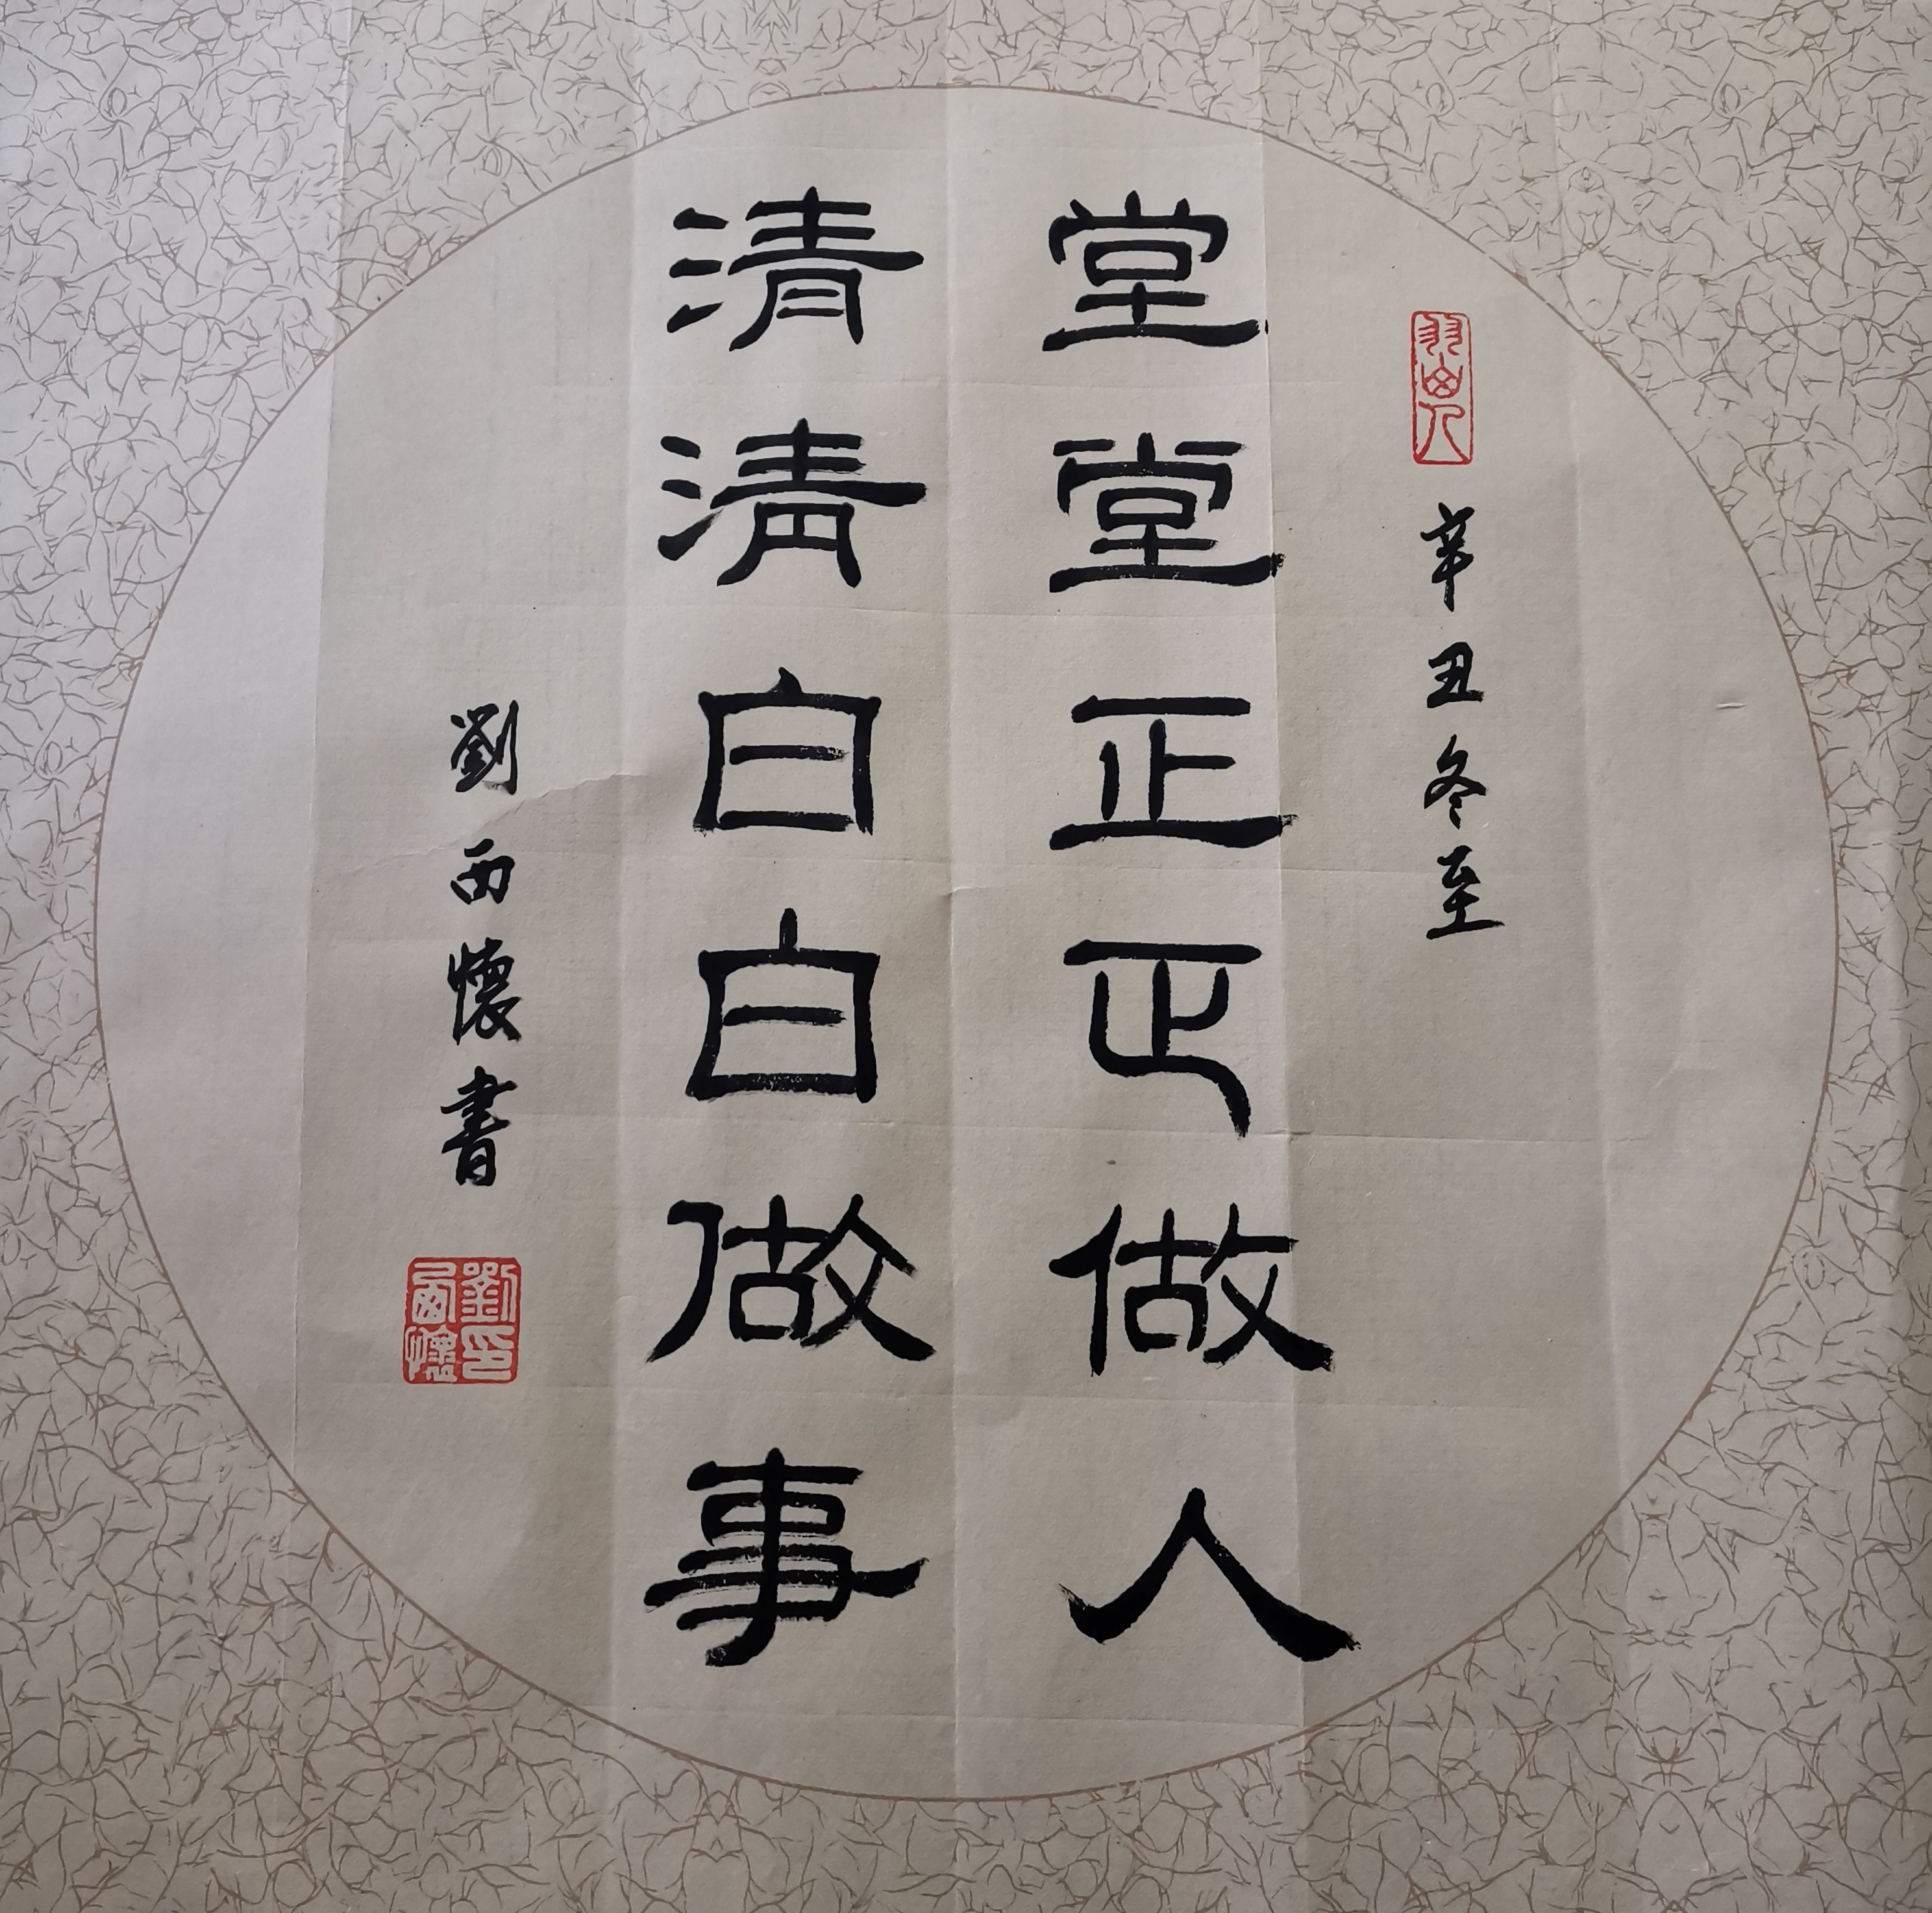 辛丑冬至
堂堂正正做人
清清白白做事
劉西懷書
劉西懷印